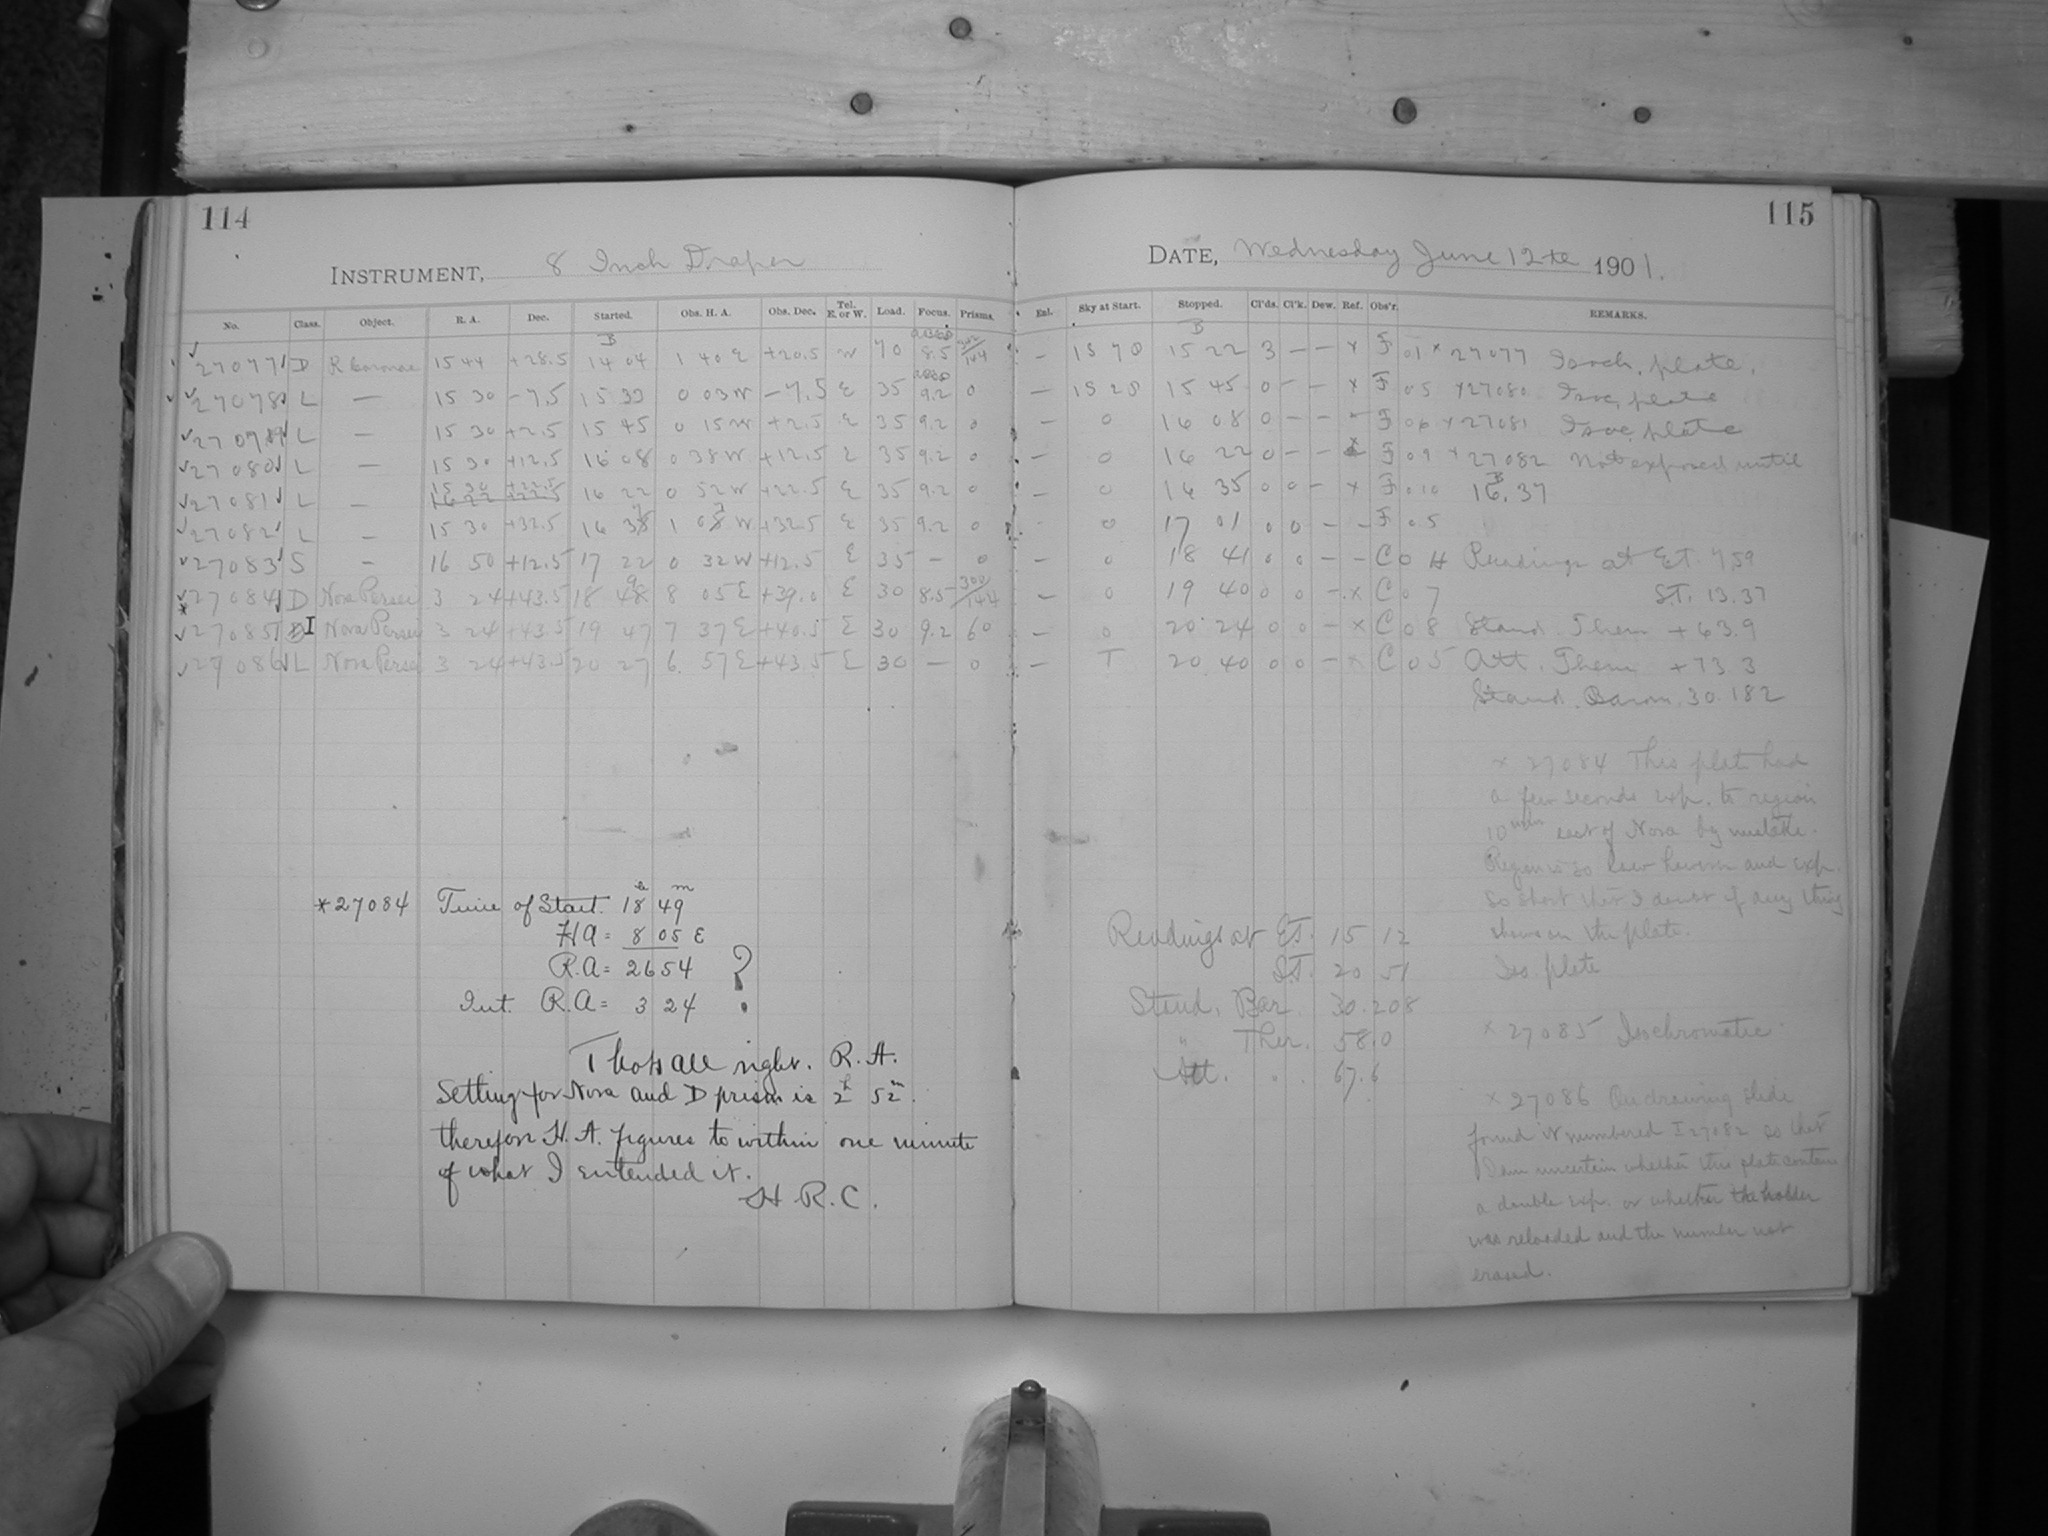 114
INSTRUMENT, 8 Inch Draper
No. Class. Object. R. A. Dec. Started. Obs. H. A. Obs. Dec. Tel. E. or W. Load. Focus. Prisms.
27077 D R Coronae 15 44 +28.5 14 04 1 40 E +20.5 W 70 8.5
27078 L — 15 30 -7.5 15 33 0 03 W -7.5 E 35 9.2 0
27079 L — 15 30 +2.5 15 45 0 15 W +2.5 E 35 9.2 0
27080 L — 15 30 +12.5 16 08 0 38 W +12.5 E 35 9.2 0
27081 L — 15 30 +22.5 16 22 0 52 W +22.5 E 35 9.2 0
27082 L — 15 30 +32.5 16 1 W +32.5 E 35 9.2 0
27083 S — 16 50 +12.5 17 22 0 32 W +12.5 E 35 — 0
27084 D Nova Persei 3 24 +43.5 18 49 8 05 E +39.0 E 30 8.5 300/144
27085 I Nova Persei 3 24 +43.5 19 47 7 37 E +40.5 E 30 9.2 60
27086 L Nova Persei 3 24 +43.5 20 27 6 57 E +43.5 E 30 — 0
*27084 Time of Start. 18h 49m
HA = 8 05 E
R.A = 26 54 ?
Int. R.A = 3 24
Thats all right. R. A.
Setting for Nova and D prism is 2h 52m.
therefore H. A. figures to within one minute
of what I entended it.
H. R. C.
115
DATE, Wednesday June 12te 1901.
Exl. Sky at Start. Stopped. Cl'ds. Cl'k. Dew. Ref. Obs'r. REMARKS.
— 1S 70 15 22 3 — — x F 01 x 27077 Isoch. plate.
— 1S 20 15 45 0 — — x F 05 x 27080 Iso. plate
— 0 16 08 0 — — F 06 x 27081 Isoc. plate
— 0 16 22 0 — — x F 09 x 27082 Not exposed until
— 0 16 35 0 0 — x F 010 16.37
0 17 01 0 0 — — F 05
— 0 18 41 0 0 — — C 0 H Readings at E.T. 7,59
— 0 19 40 0 0 — x C 07 S.T. 13.37
— 0 20 24 0 0 — x C 08 Stand. Them +63.9
— T 20 40 0 0 — x C 05 Att. Them +73.3
Stand. Barom. 30.182
x 27084 This plate had
a few seconds exp. to region
10 min east of Nova by mistake.
Region is so low down and exp.
so short that I doubt if any thing
shows on the plate.
Iso. plate
Readings at E.T. 15 12
S.T. 20 51
Stand. Bar. 30.208
" Ther. 58.0
Att. " 67.6
x 27085 Isochromatic
x 27086 On drawing slide
found it numbered I 27082 so that
I am uncertain whether this plate contains
a double exp. or whether the holder
was reloaded and the number not
erased.